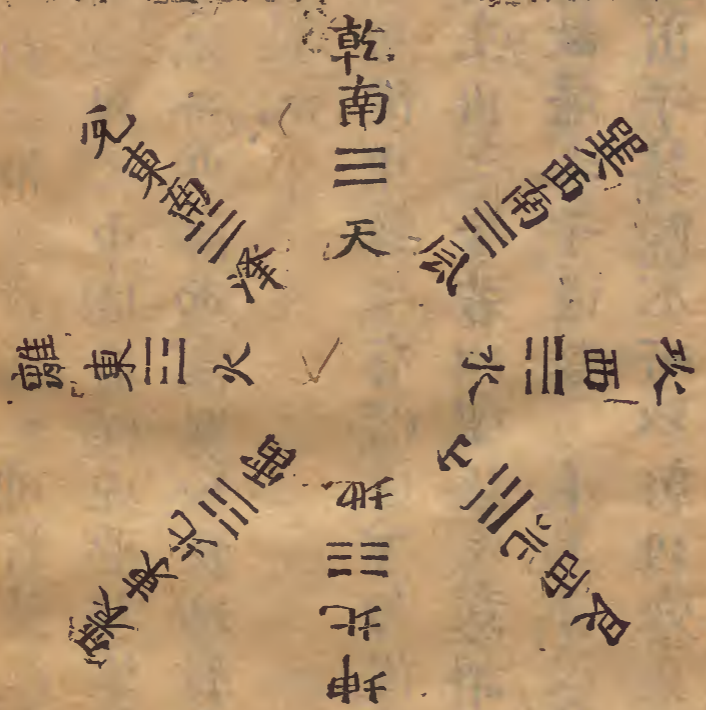 乾南☰天
巽西南☴风
坎西☵水
艮西北☶山
坤北☷地
震東北☳雷
離東☲火
兌東南☱澤